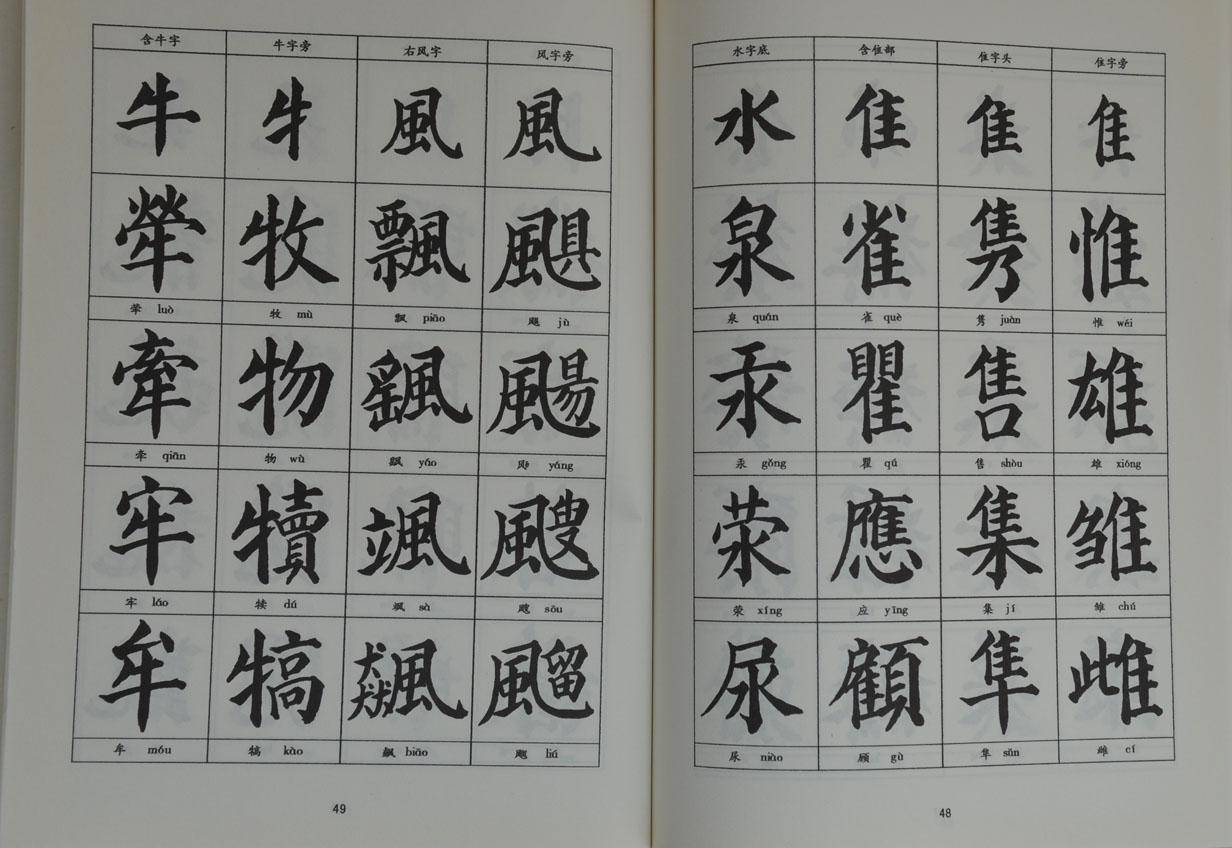 隹字旁
隹
惟
惟 wéi
雄
雄 xióng
雏
雏 chú
雌
雌 cí
隹字头
隹
隽
隽 juàn
售
售 shòu
集
集 jí
隼
隼 sǔn
含隹部
隹
雀
雀 què
瞿
瞿 qú
應
应 yīng
顧
顾 gù
水字底
水
泉
泉 quán
汞
汞 gǒng
荥
荥 xíng
尿
尿 niào
48
风字旁
風
颶
飓 jù
颺
飏 yáng
颼
飕 sōu
飀
飗 liú
右风字
風
飄
飘 piāo
颻
飖 yáo
颯
飒 sà
飆
飙 biāo
牛字旁
牜
牧
牧 mù
物
物 wù
犢
犊 dú
犒
犒 kào
含牛字
牛
犖
荦 luò
牽
牵 qiān
牢
牢 láo
牟
牟 móu
49